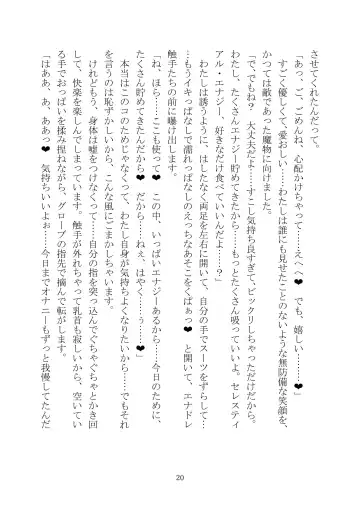 させてくれたんだって。
「あっ、ご、ごめんね、心配かけちゃって……えへへ❤　でも、嬉しい……❤」
すごく優しくて、愛おしい……わたしは誰にも見せたことのないような無防備な笑顔を、
かつては敵であった魔物に向けました。
「で、でもね？　大丈夫だよ……すこし気持ち良すぎて、ビックリしちゃっただけだから。
わたし、たくさんエナジー貯めてきたから……もっとたくさん吸っていいよ。セレスティ
アル・エナジー、好きなだけ食べていいんだよ……？」
わたしは誘うように、はしたなく両足を左右に開いて、自分の手でスーツをずらして…
…もうイキっぱなしで濡れっぱなしのえっちなあそこをくぱぁっ❤　と開いて、エナドレ
触手たちの前に曝け出します。
「ね、ほら……ここも使って❤　この中、いっぱいエナジーあるから……今日のために、
たくさん貯めてきたんだから……❤　だから……ねぇ、はやく……うぅっ❤」
本当はこのコのためじゃなくって、わたし自身が気持ちよくなりたいから……でもそれ
を言うのは恥ずかしいから、こんな風にごまかしちゃいます。
けれどもう、身体は嘘をつけなくって……自分の指を突っ込んでぐちゃぐちゃとかき回
して、快楽を楽しんでしまっています。触手が外れちゃって乳首も寂しいから、空いてい
る手でおっぱいを揉み捏ねながら、グローブの指先で摘んで転がします。
「はああ、あ、ああっ❤　気持ちいいよぉ……今日までオナニーもずっと我慢してたんだ
20